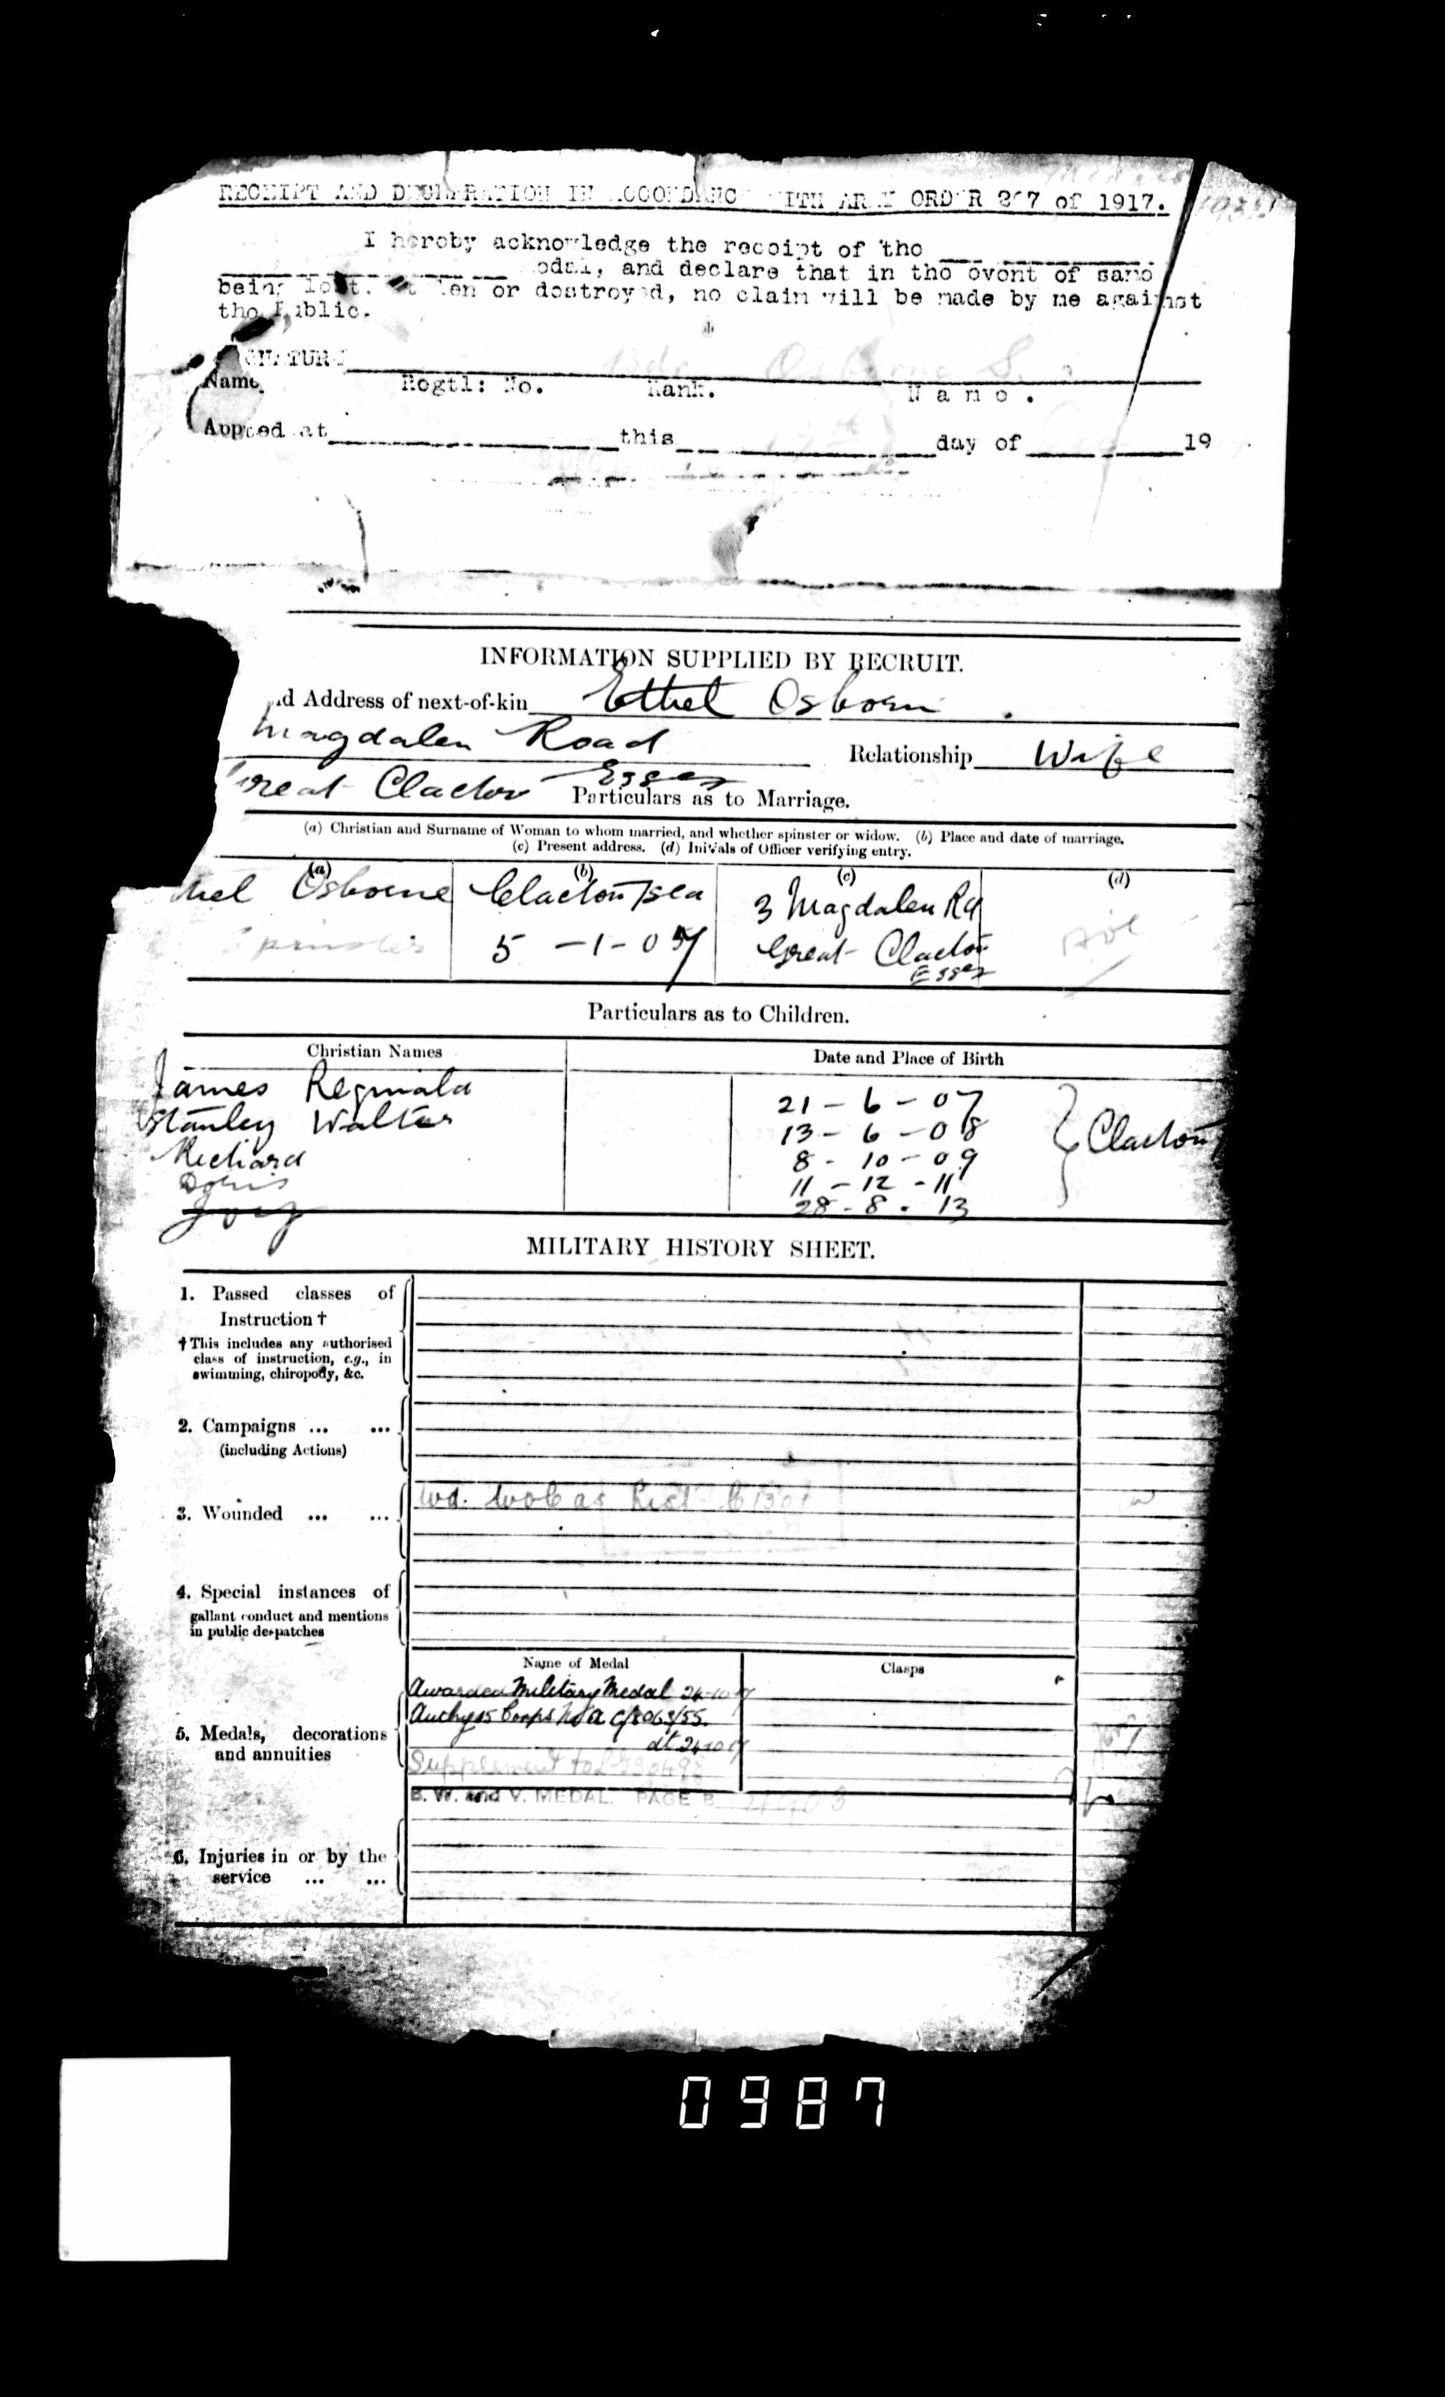 RECEIPT AND DECLARATION IN ACCORDANC ITH ARMY ORD R 267 of 1917.
I hereby acknowledge the receipt of the
edal, and declare that in the event of same
being lost, st len or destroyed, no claim will be made by me against
the Public.
SIGNATURE
Bdr Osborne S.
Name Regtl: No. Rank. N a m e .
at this day of 19
INFORMATION SUPPLIED BY RECRUIT.
d Address of next-of-kin Ethel Osborn
Magdalen Road Relationship Wife
Great Clacton Essex
Particulars as to Marriage.
(a) Christian and Surname of Woman to whom married, and whether spinster or widow. (b) Place and date of marriage.
(c) Present address. (d) Initials of Officer verifying entry.
(a) (b) (c) (d)
thel Osborne Clacton/sea 3 Magdalen Rd
Spinster 5 -1- 07 Great Clacton
Essex
Particulars as to Children.
Christian Names Date and Place of Birth
James Reginald 21 - 6 - 07
Stanley Walter 13 - 6 - 08 Clacton
Richard 8 - 10 - 09
Doris 11 - 12 - 11
Joey 28 - 8 . 13
MILITARY HISTORY SHEET.
1. Passed classes of
Instruction †
† This includes any authorised
class of instruction, e.g., in
swimming, chiropody, &c.
2. Campaigns ... ...
(including Actions)
3. Wounded ... ... Wd. List
4. Special instances of
gallant conduct and mentions
in public despatches
Name of Medal Clasps
Awarded Military Medal 24-10-17
Authy 15 Corps No A C/8063/55.
5. Medals, decorations dt 24-10-17
and annuities
Supplement to
B. W. and V. MEDAL. PAGE B
6. Injuries in or by the
service ... ...
0987